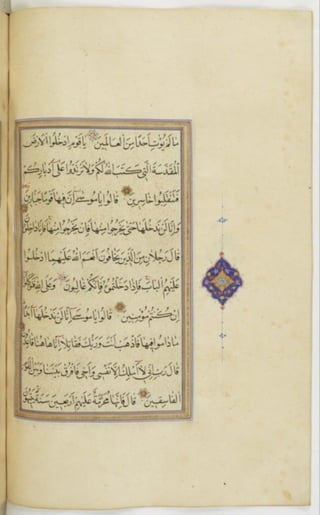 ما لم يؤت احدا من العالمين يا قوم ادخلوا الارض
المقدسة التي كتب الله لكم ولا ترتدوا على ادباركم
فتنقلبوا خاسرين قالوا يا موسى ان فيها قوما جبارين
وانا لن ندخلها حتى يخرجوا منها فان يخرجوا منها فانا داخلون
قال رجلان من الذين يخافون انعم الله عليهما ادخلوا
عليهم الباب فاذا دخلتموه فانكم غالبون وعلى الله فتوكلوا
ان كنتم مؤمنين قالوا يا موسى انا لن ندخلها ابدا
ما داموا فيها فاذهب انت وربك فقاتلا انا هاهنا قاعدون
قال رب اني لا املك الا نفسي واخي فافرق بيننا وبين القوم
الفاسقين قال فانها محرمة عليهم اربعين سنة يتيهون